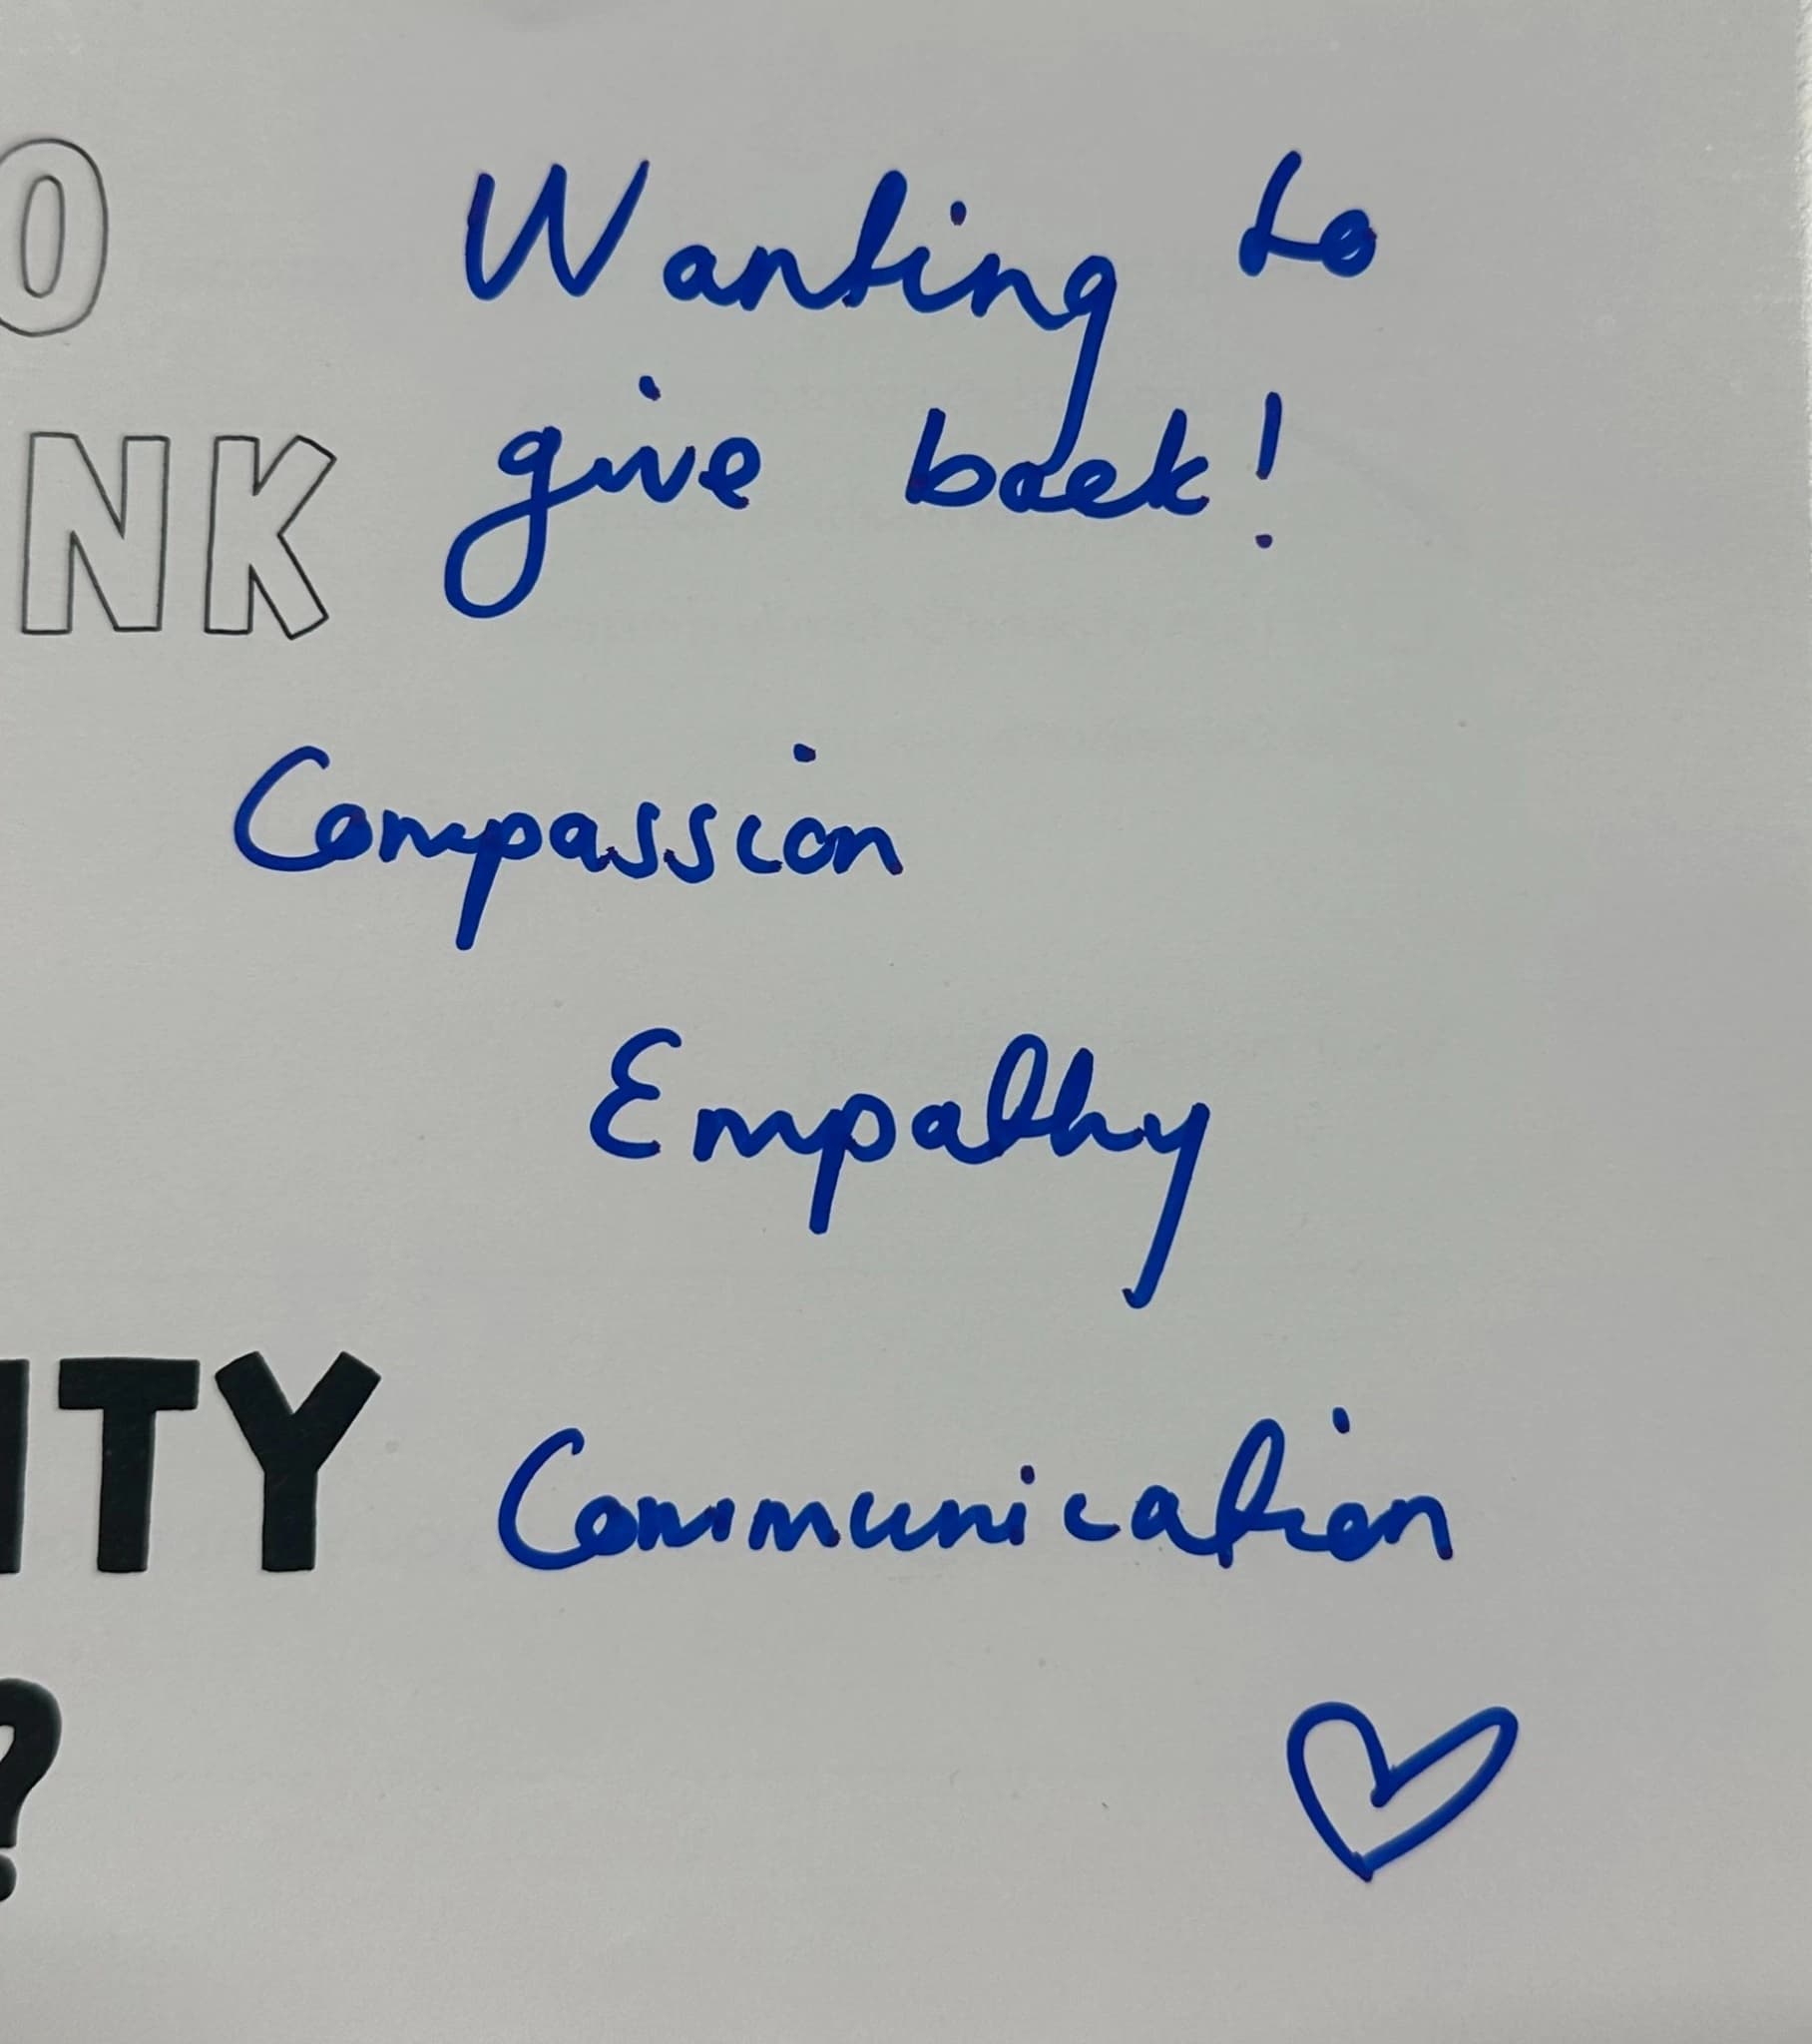 O
Wanting to
NK
give back!
Compassion
Empathy
ITY
Communication
?